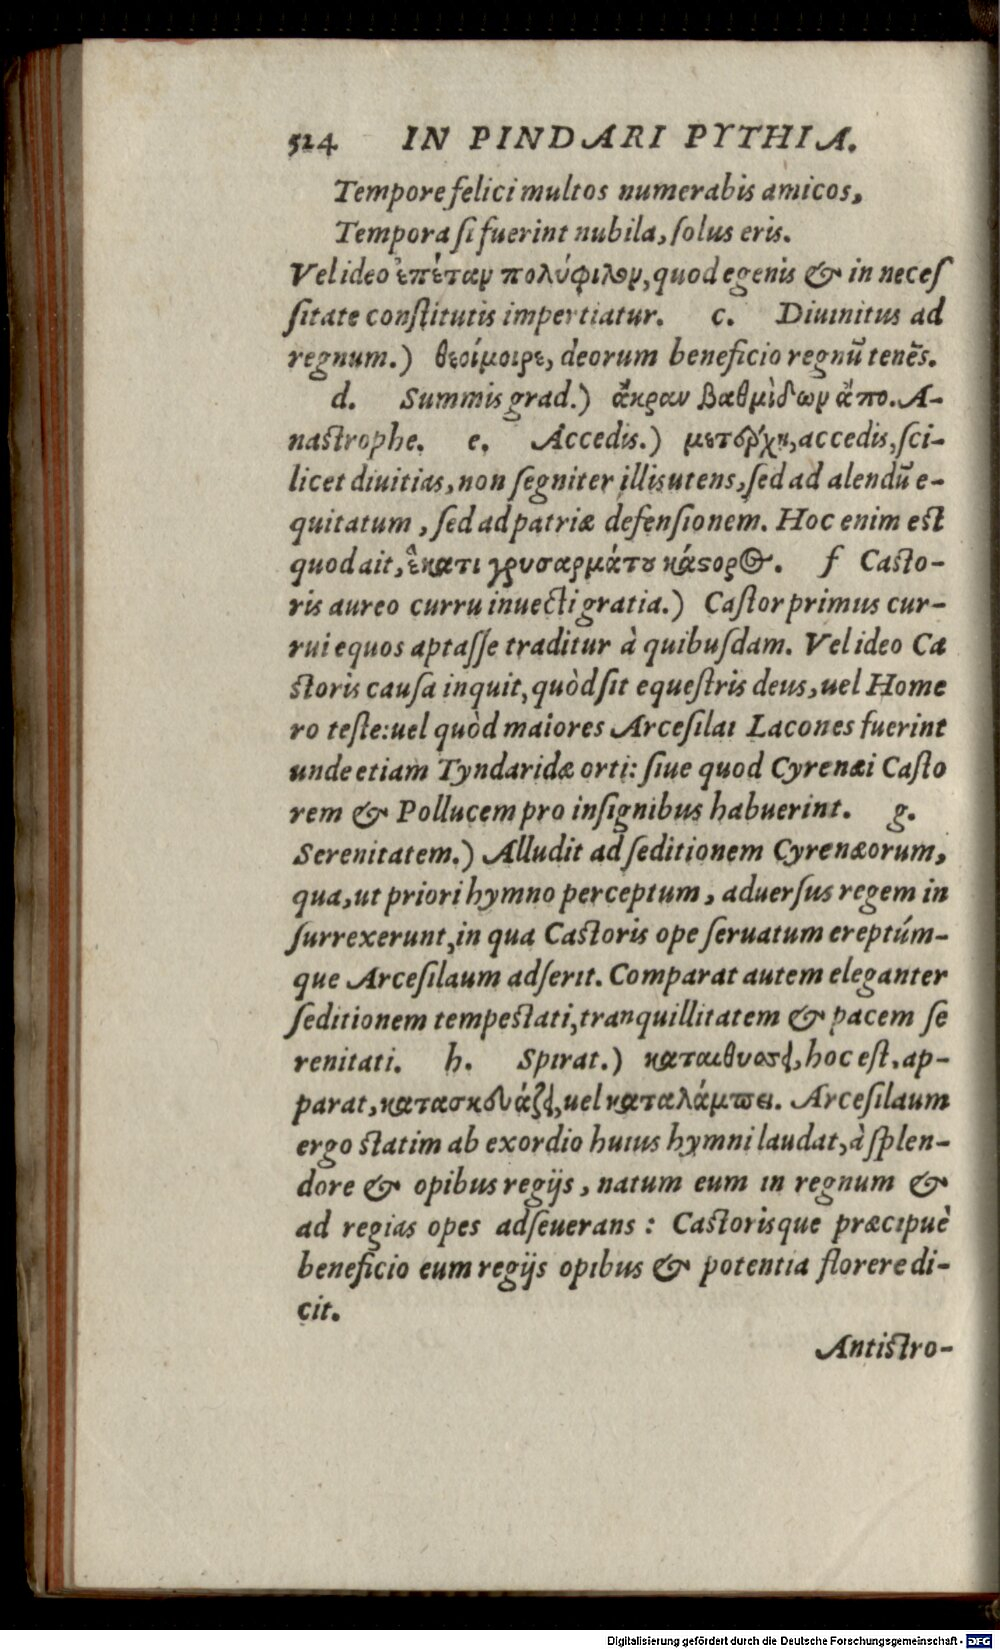 524 IN PINDARI PYTHIA.
Tempore felici multos numerabis amicos,
Tempora ſi fuerint nubila, ſolus eris.
Vel ideo ἑπέταν πολύφιλον, quod egenis & in neceſ
ſitate conſtitutis impertiatur. c. Diuinitus ad
regnum.) θεοίμοιρε, deorum beneficio regnū tenēs.
d. Summis grad.) ἄκραν βαθμίδων ἄπο. A-
naſtrophe. e. Accedis.) μετέρχῃ, accedis, ſci-
licet diuitias, non ſegniter illis utens, ſed ad alendū e-
quitatum, ſed ad patriæ defenſionem. Hoc enim eſt
quod ait, ἕκατι χρυσαρμάτου κάστορος. f Caſto-
ris aureo curru inuecti gratia.) Caſtor primus cur-
rui equos aptaſſe traditur à quibuſdam. Vel ideo Ca
ſtoris cauſa inquit, quòd ſit equeſtris deus, uel Home
ro teſte: uel quòd maiores Arceſilai Lacones fuerint
unde etiam Tyndaridæ orti: ſiue quod Cyrenæi Caſto
rem & Pollucem pro inſignibus habuerint. g.
Serenitatem.) Alludit ad ſeditionem Cyrenæorum,
qua, ut priori hymno perceptum, aduerſus regem in
ſurrexerunt, in qua Caſtoris ope ſeruatum ereptúm-
que Arceſilaum adſerit. Comparat autem eleganter
ſeditionem tempeſtati, tranquillitatem & pacem ſe
renitati. h. Spirat.) καταιθύσσει, hoc eſt, ap-
parat, κατασκευάζει, uel καταλάμπει. Arceſilaum
ergo ſtatim ab exordio huius hymni laudat, à ſplen-
dore & opibus regijs, natum eum in regnum &
ad regias opes adſeuerans: Caſtorisque præcipuè
beneficio eum regijs opibus & potentia florere di-
cit.
Antiſtro-
Digitalisierung gefördert durch die Deutsche Forschungsgemeinschaft - DFG